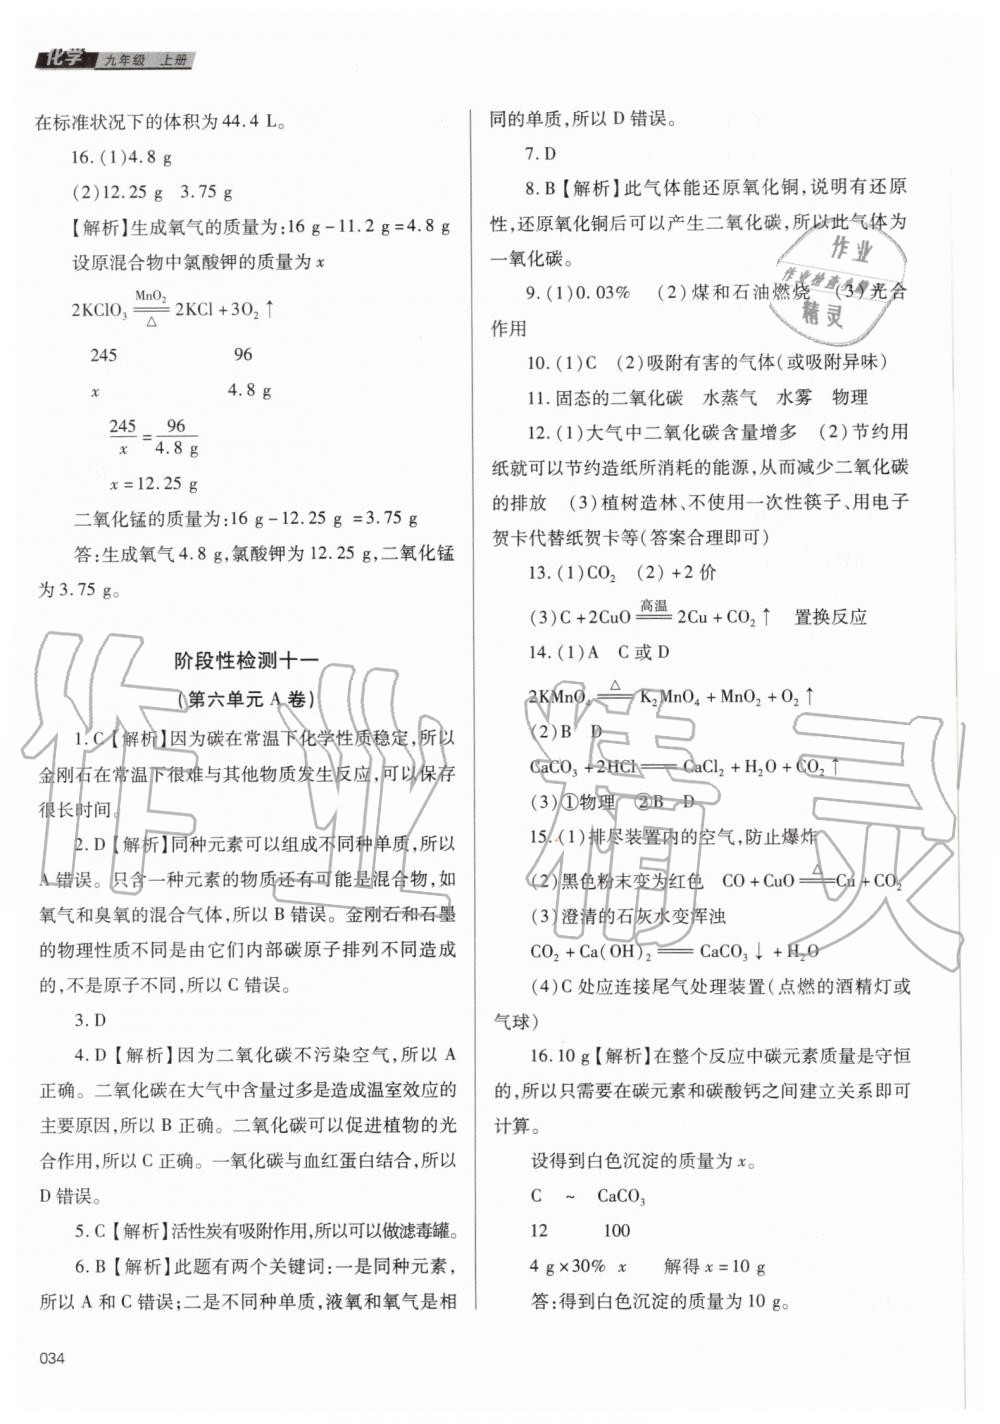 化学 九年级 上册
在标准状况下的体积为44.4 L。
16.(1)4.8 g
(2)12.25 g 3.75 g
【解析】生成氧气的质量为:16 g-11.2 g=4.8 g
设原混合物中氯酸钾的质量为x
2KClO₃ =(MnO₂/△)= 2KCl+3O₂↑
245 96
x 4.8 g
245/x=96/4.8 g
x=12.25 g
二氧化锰的质量为:16 g-12.25 g =3.75 g
答:生成氧气4.8 g,氯酸钾为12.25 g,二氧化锰
为3.75 g。
阶段性检测十一
(第六单元A卷)
1.C【解析】因为碳在常温下化学性质稳定,所以
金刚石在常温下很难与其他物质发生反应,可以保存
很长时间。
2.D【解析】同种元素可以组成不同种单质,所以
A错误。只含一种元素的物质还有可能是混合物,如
氧气和臭氧的混合气体,所以B错误。金刚石和石墨
的物理性质不同是由它们内部碳原子排列不同造成
的,不是原子不同,所以C错误。
3.D
4.D【解析】因为二氧化碳不污染空气,所以A
正确。二氧化碳在大气中含量过多是造成温室效应的
主要原因,所以B正确。二氧化碳可以促进植物的光
合作用,所以C正确。一氧化碳与血红蛋白结合,所以
D错误。
5.C【解析】活性炭有吸附作用,所以可以做滤毒罐。
6.B【解析】此题有两个关键词:一是同种元素,
所以A和C错误;二是不同种单质,液氧和氧气是相
同的单质,所以D错误。
7.D
8.B【解析】此气体能还原氧化铜,说明有还原
性,还原氧化铜后可以产生二氧化碳,所以此气体为
一氧化碳。
9.(1)0.03% (2)煤和石油燃烧 (3)光合
作用
10.(1)C (2)吸附有害的气体(或吸附异味)
11.固态的二氧化碳 水蒸气 水雾 物理
12.(1)大气中二氧化碳含量增多 (2)节约用
纸就可以节约造纸所消耗的能源,从而减少二氧化碳
的排放 (3)植树造林、不使用一次性筷子、用电子
贺卡代替纸贺卡等(答案合理即可)
13.(1)CO₂ (2)+2价
(3)C+2CuO =(高温)= 2Cu+CO₂↑ 置换反应
14.(1)A C或D
2KMnO₄ =(△)= K₂MnO₄+MnO₂+O₂↑
(2)B D
CaCO₃+2HCl══CaCl₂+H₂O+CO₂↑
(3)①物理 ②B D
15.(1)排尽装置内的空气,防止爆炸
(2)黑色粉末变为红色 CO+CuO =(△)= Cu+CO₂
(3)澄清的石灰水变浑浊
CO₂+Ca(OH)₂══CaCO₃↓+H₂O
(4)C处应连接尾气处理装置(点燃的酒精灯或
气球)
16.10 g【解析】在整个反应中碳元素质量是守恒
的,所以只需要在碳元素和碳酸钙之间建立关系即可
计算。
设得到白色沉淀的质量为x。
C ~ CaCO₃
12 100
4 g×30% x 解得x=10 g
答:得到白色沉淀的质量为10 g。
034
作业
作业检查小
精灵
作业精灵